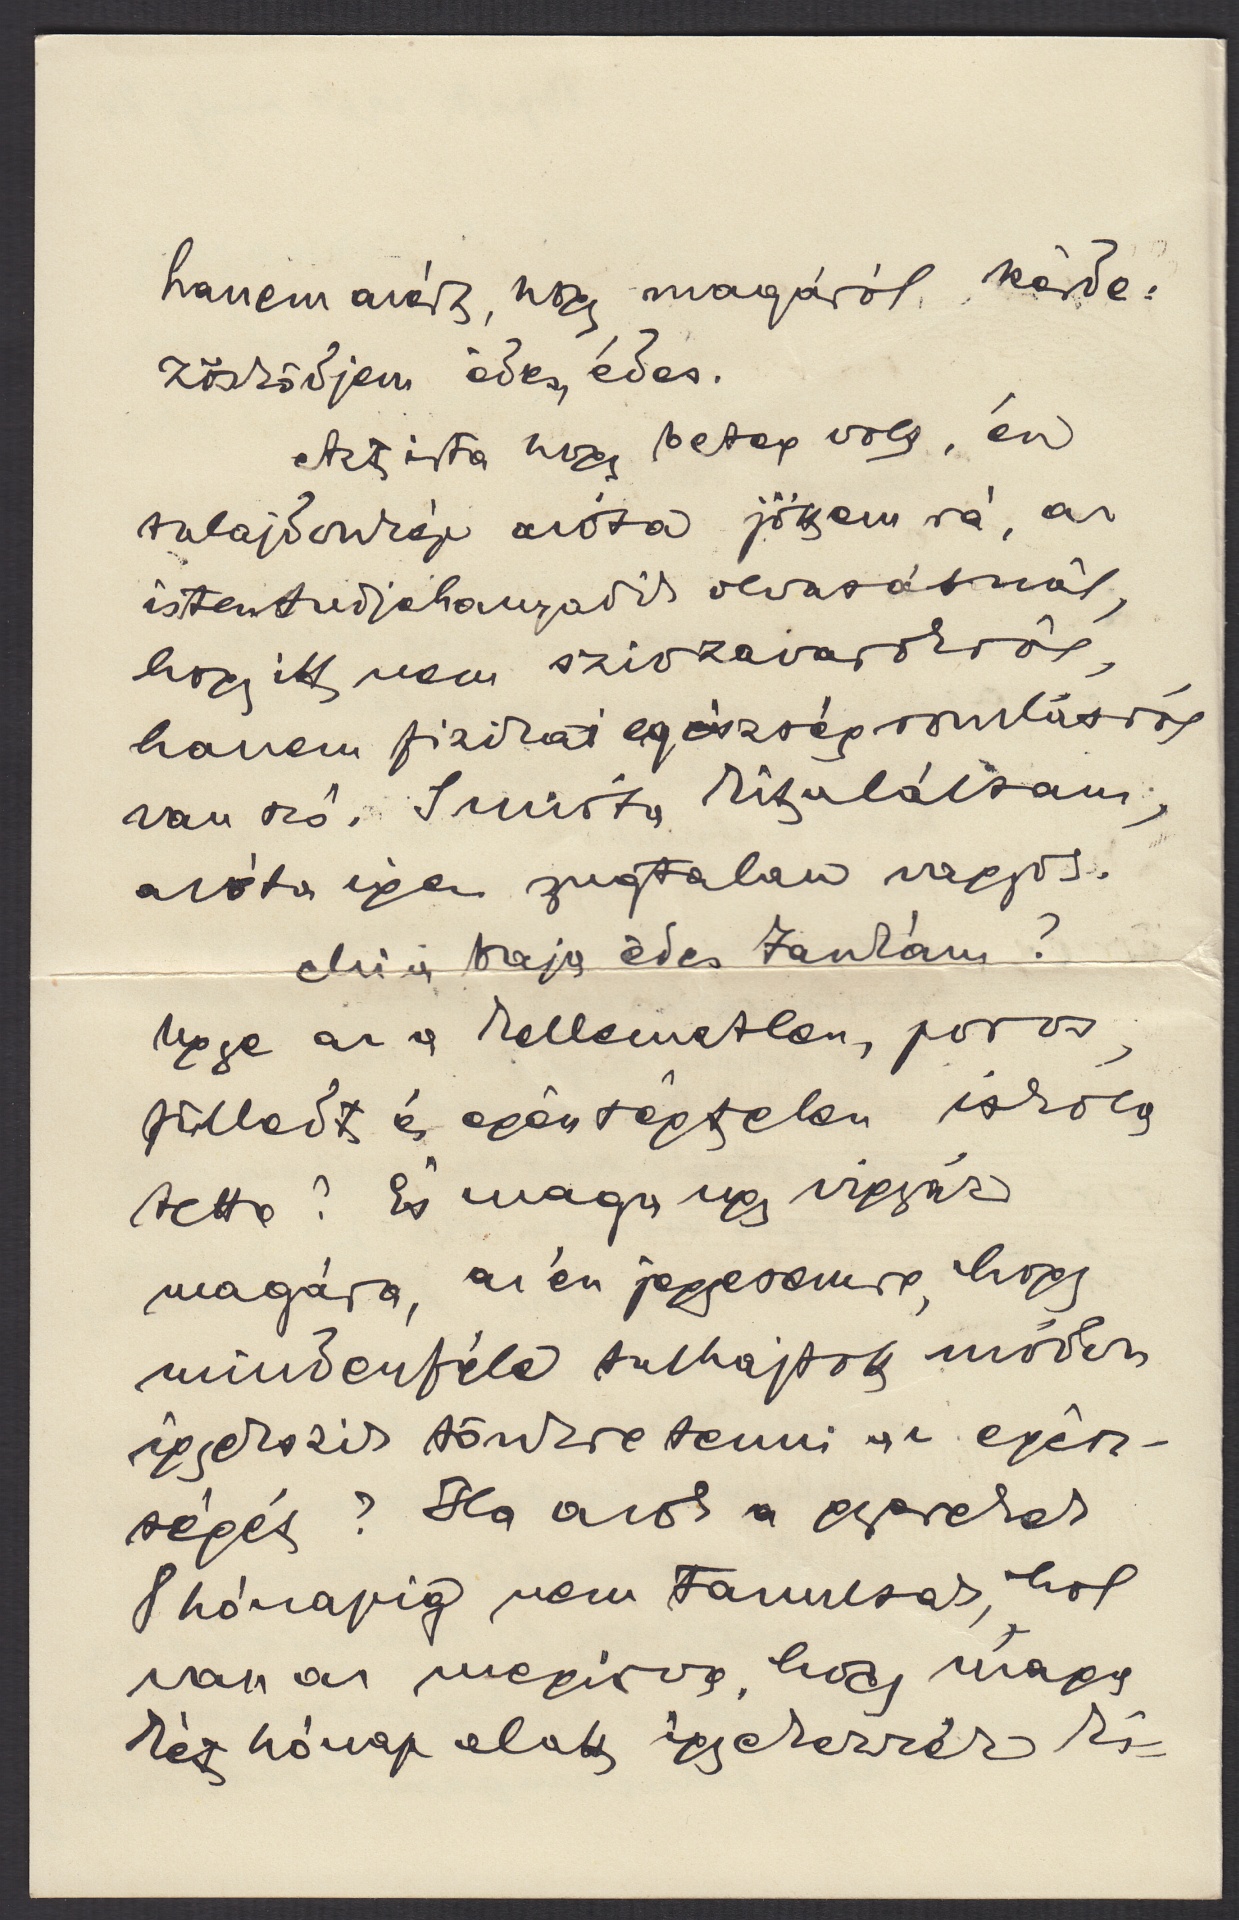 hanem azért, hogy magáról kérde-
zősködjem édes, édes.
Azt írta hogy beteg volt, én
tulajdonkép azóta jöttem rá, az
istentudjahanyadik olvasásnál,
hogy itt nem szivzavarokról,
hanem fizikai egészségromlásról
van szó. S mióta kitaláltam,
azóta igen nyugtalan vagyok.
Mi a baja édes Fankám?
Ugye az a kellemetlen, poros,
fülledt és egészségtelen iskola
tette? És maga ugy vigyáz
magára, az én jegyesemre, hogy
mindenféle tulhajtott módon
igyekszik tönkre tenni az egész-
ségét? Ha azok a gyerekek
8 hónapig nem tanultak, hol
van az megirva, hogy maga
két hónap alatt igyekezzék ki-